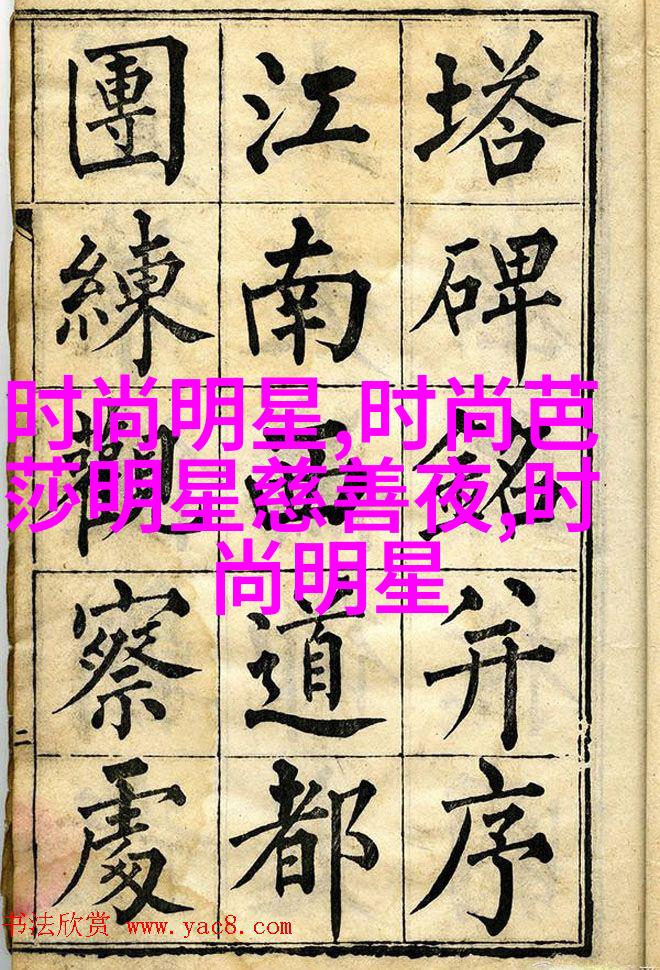 塔碑銘并序
江南西道都
團練觀察處
二
时尚明星,时尚芭
莎明星慈善夜,时
尚明星
书法欣赏 www.yac8.com